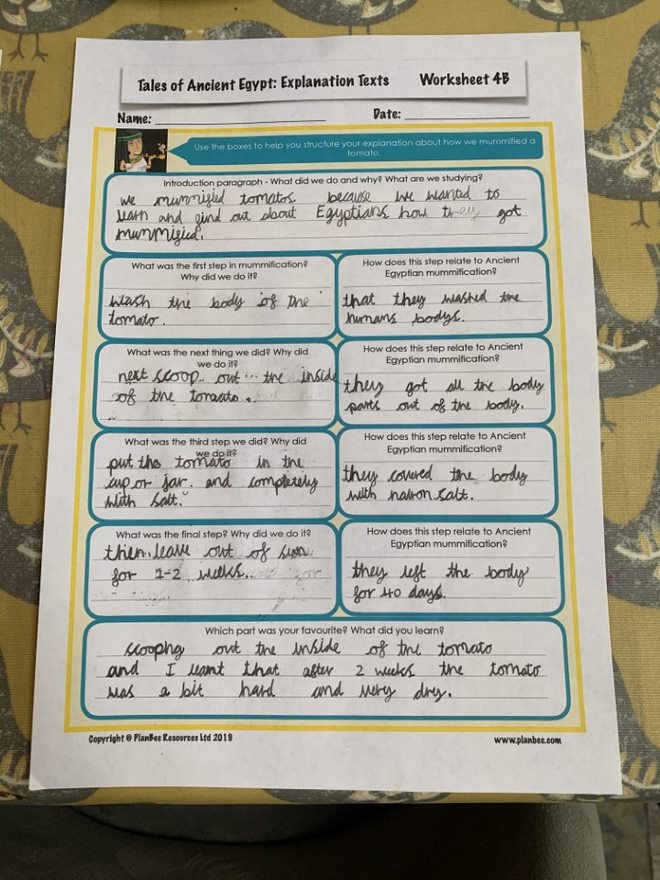 Tales of Ancient Egypt: Explanation Texts Worksheet 4B
Name: Date:
Use the boxes to help you structure your explanation about how we mummified a
tomato.
Introduction paragraph - What did we do and why? What are we studying?
we mummified tomatos because we wanted to
learn and find out about Egyptians how they got
mummified.
What was the first step in mummification?
Why did we do it?
wash the body of the
tomato.
How does this step relate to Ancient
Egyptian mummification?
that they washed the
humans bodys.
What was the next thing we did? Why did
we do it?
next scoop out the inside
of the tomato.
How does this step relate to Ancient
Egyptian mummification?
they got all the body
parts out of the body.
What was the third step we did? Why did
we do it?
put the tomato in the
cup or jar. and completely
with salt.
How does this step relate to Ancient
Egyptian mummification?
they covered the body
with natron salt.
What was the final step? Why did we do it?
then leave out of sun
for 1-2 weeks.
How does this step relate to Ancient
Egyptian mummification?
they left the body
for 40 days.
Which part was your favourite? What did you learn?
scooping out the inside of the tomato
and I learnt that after 2 weeks the tomato
was a bit hard and very dry.
Copyright © PlanBee Resources Ltd 2019 www.planbee.com